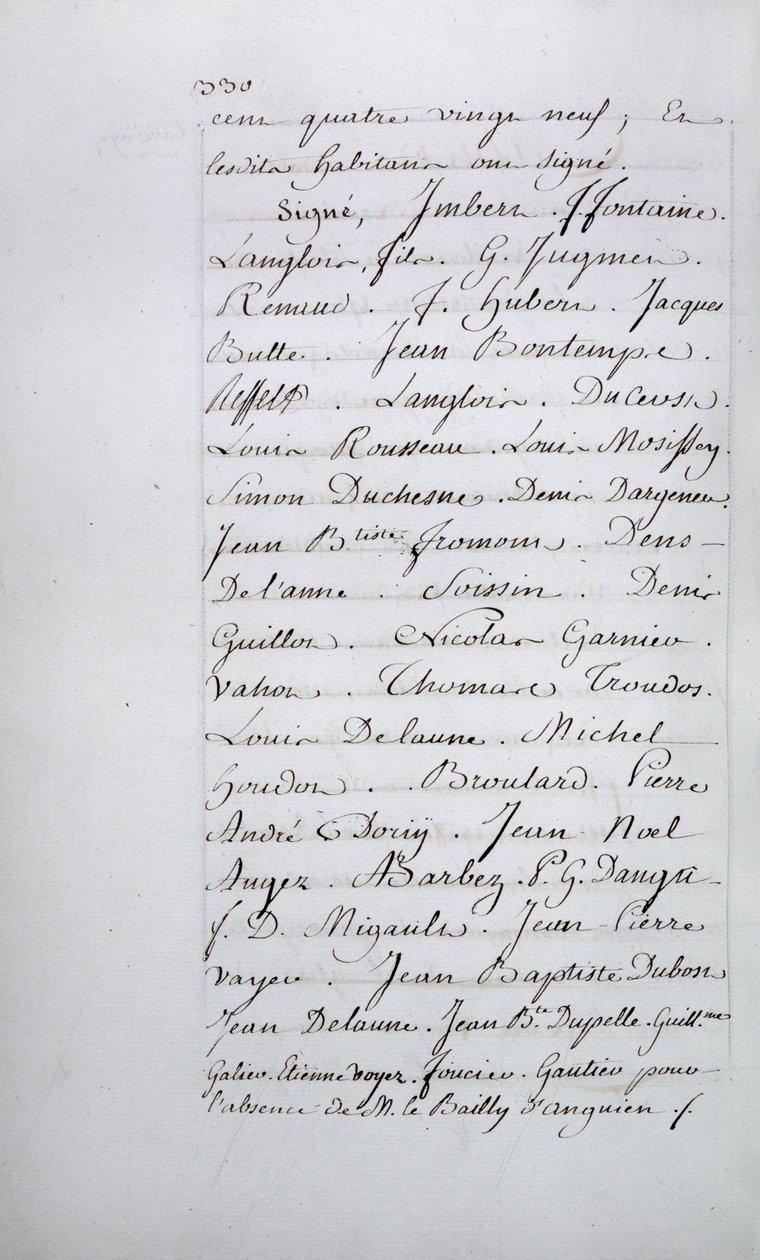 330
cent quatre vingt neuf ; Et
lesdits habitans ont signé.
Signé, Imbert . f. fontaine.
Langlois, fils . G. Jugmer .
Renaud . F. hubert . Jacques
Butte . Jean Bontemps .
Langlois . Ducerst .
Louis Rousseau . Louis
Simon Duchesne . Denis Dargener .
Jean B.tiste fromont . Dens
De l'anne . Soissin . Denis
Guillot . Nicolas Garnier .
Vahot . Thomas Troudos .
Louis Delaune . Michel
houdon . . Broulard . Pierre
André Doriÿ . Jean Noel
Auger . A Barbez . P. G. Dangu
f. D. Migault . Jean Pierre
Vayer . Jean Baptiste Dubost
Jean Delaune . Jean B.te Dupelle . Guill.me
Galier . Etienne Voyer . foucier . Gautier pour
l'absence de M. le Bailly d'anguien ./.